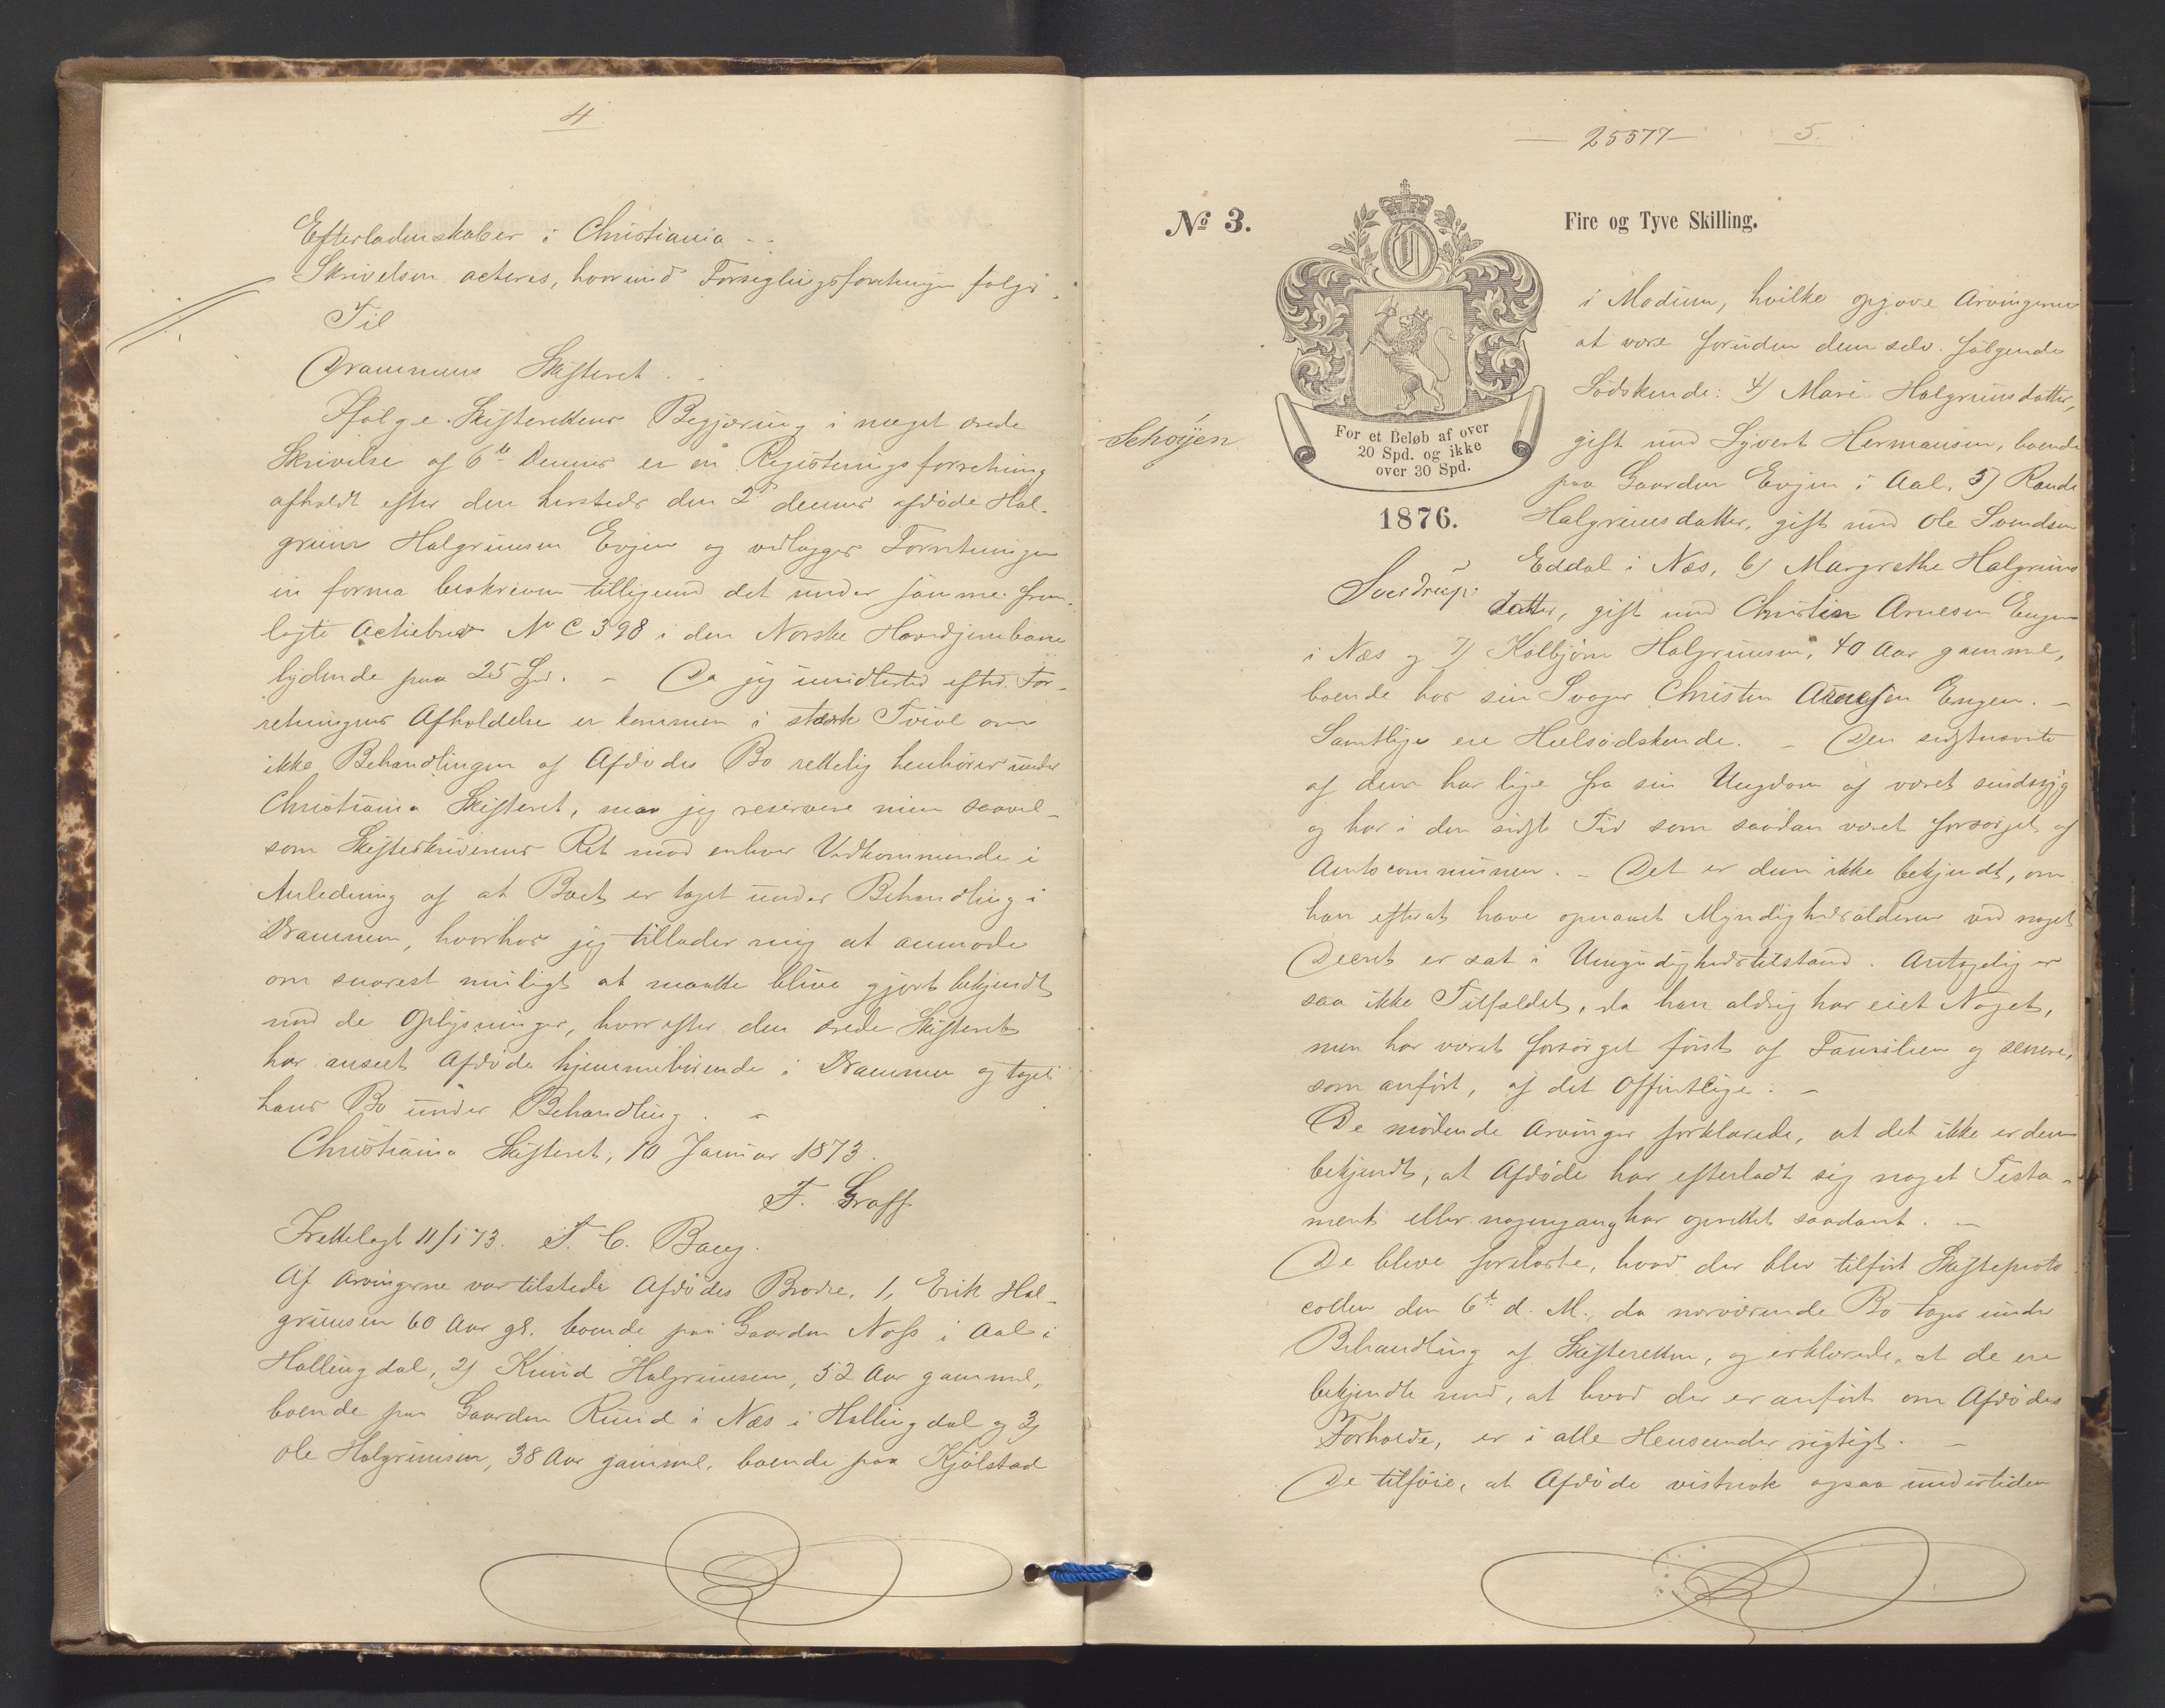 4
Efterladenskaber i Christiania --
Skrivelsen acteres, hvormed Forseglingsforretningen følger.
Til
Drammens Skifteret.
Ifølge Skifterettens Begjæring i meget ærede
Skrivelse af 6te Dennes er en Registreringsforretning
afholdt efter den hersteds den 2den dennes afdøde Hal-
grim Halgrimsen Evjen og vedlægges Forretningen
in forma beskreven tilligemed det under samme frem-
lagte Actiebrev No C 398 i den Norske Hovedjernbane
lydende paa 25 Spd. - Da jeg imidlertid efter For-
retningens Afholdelse er kommen i stærk Tvivl om
ikke Behandlingen af Afdødes Bo rettelig henhører under
Christiania Skifteret, maa jeg reservere min saavel-
som Skifteskriverens Ret mod enhver Vedkommende i
Anledning af at Boet er taget under Behandling i
Drammen, hvorhos jeg tillader mig at anmode
om snarest muligt at maatte blive gjort bekjendt
med de Oplysninger, hvorefter den ærede Skifteret
har anseet Afdøde hjemmehørende i Drammen og taget
hans Bo under Behandling. -
Christiania Skifteret, 10 Januar 1873.
F. Graff
Irettelagt 11/1 73. T. C. Bang.
Af Arvingerne var tilstede Afdødes Brødre, 1, Erik Hal-
grimsen 60 Aar gl. boende paa Gaarden Næss i Aal i
Hallingdal, 2) Knud Halgrimsen, 52 Aar gammel,
boende paa Gaarden Ruud i Næs i Hallingdal og 3)
Ole Halgrimsen, 38 Aar gammel, boende paa Kjølstad
— 25577 —
5.
No 3.
Fire og Tyve Skilling.
O
For et Beløb af over
20 Spd. og ikke
over 30 Spd.
1876.
Schøyen
Sverdrup
i Modum, hvilke opgave Arvingerne
at være foruden dem selv følgende
Sødskende: 4) Mari Halgrimsdatter,
gift med Syvert Hermansen, boende
paa Gaarden Evjen i Aal, 5) Rande
Halgrimsdatter, gift med Ole Svendsen
Eddal i Næs, 6) Margrethe Halgrims
datter, gift med Christen Arnesen Engen
i Næs og 7) Kolbjørn Halgrimsen, 40 Aar gammel,
boende hos sin Svoger Christen Arnesen Engen. -
Samtlige ere Helsødskende. - Den sidstnævnte
af dem har lige fra sin Ungdom af været sindssyg
og har i den sidste Tid som saadan været forsørget af
Amtscommunen. - Det er dem ikke bekjendt, om
han efterat have opnaaet Myndighedsalderen ved noget
Decret er sat i Umyndighedstilstand. Antagelig er
saa ikke Tilfældet, da han aldrig har eiet Noget,
men har været forsørget først af Familien og senere,
som anført, af det Offentlige. -
De mødende Arvinger forklarede, at det ikke er dem
bekjendt, at Afdøde har efterladt sig noget Testa-
ment eller nogengang har oprettet saadant. -
De bleve forelæste, hvad der blev tilført Skifteproto
collen den 6te d. M., da nærværende Bo toges under
Behandling af Skifteretten, og erklærede, at de ere
bekjendte med, at hvad der er anført om Afdødes
Forholde, er i alle Henseender rigtigt. -
De tilføie, at Afdøde vistnok ogsaa undertiden